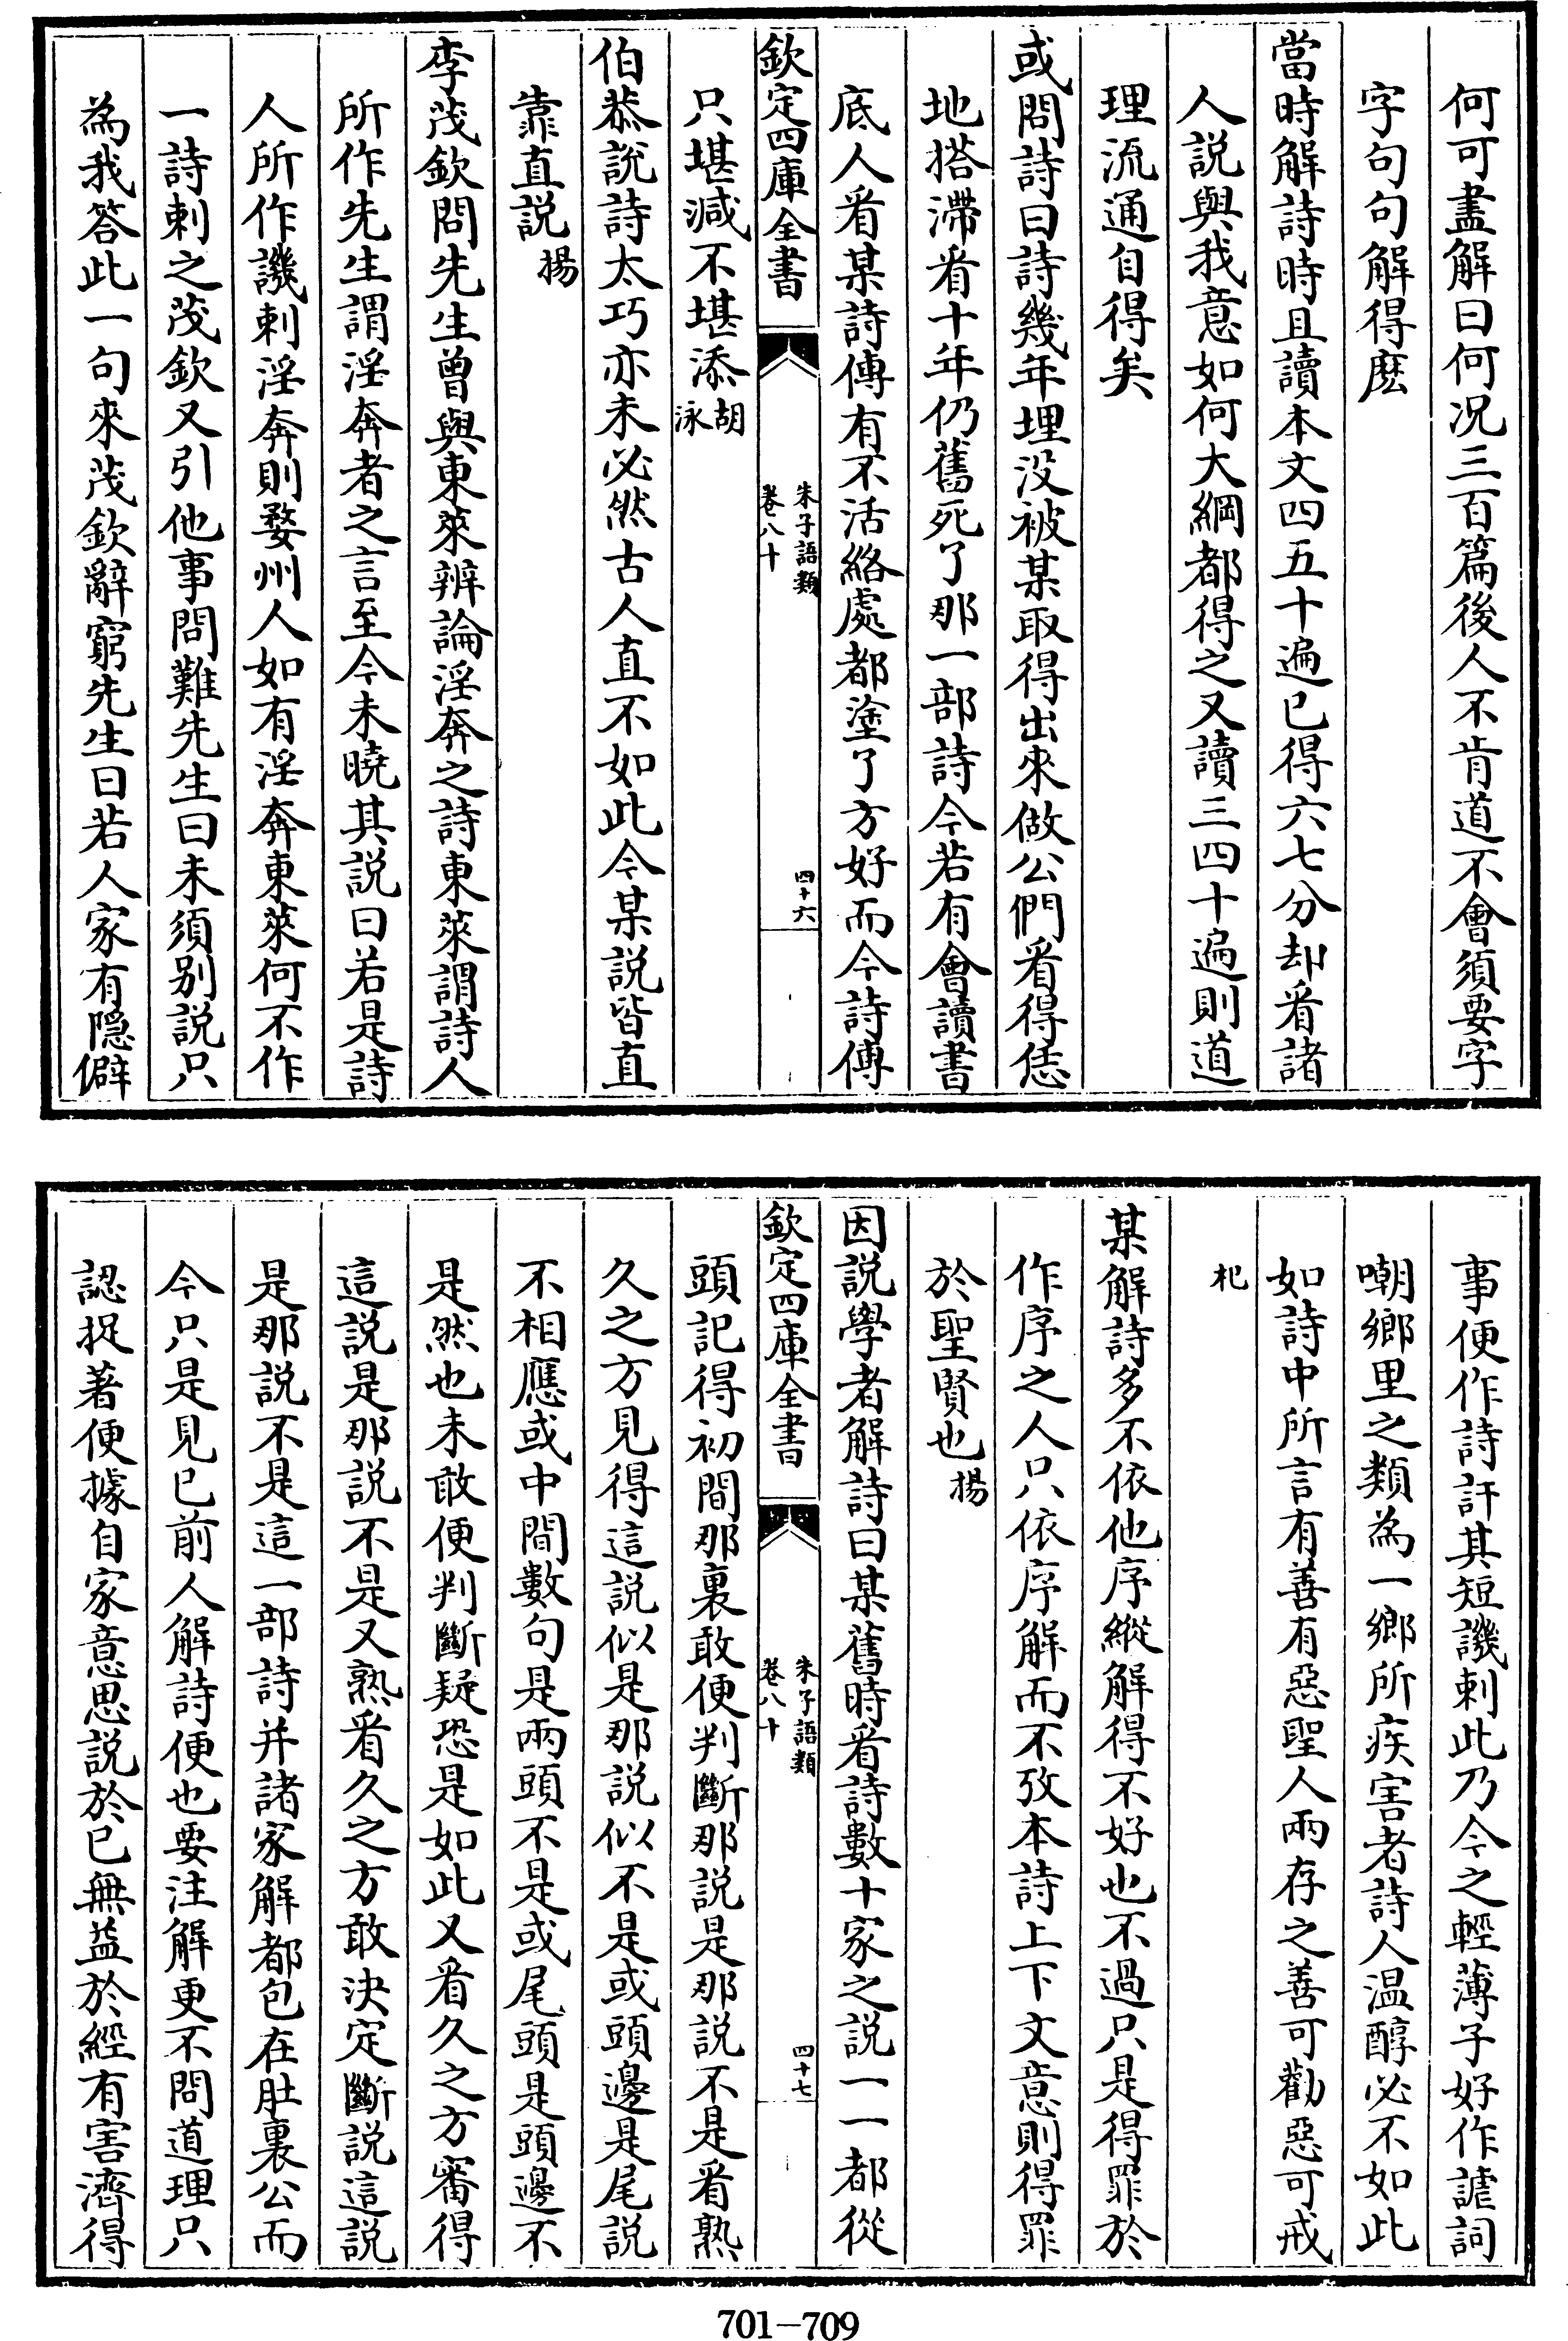 何可盡解曰何况三百篇後人不肯道不會須要字
字句句解得麽
當時解詩時且讀本文四五十遍已得六七分却看諸
人説與我意如何大綱都得之又讀三四十遍則道
理流通自得矣
或問詩曰詩幾年埋没被某取得出來做公們看得恁
地搭滯看十年仍舊死了那一部詩今若有會讀書
底人看某詩傳有不活絡處都塗了方好而今詩傳
欽定四庫全書
朱子語類
卷八十
四十六
只堪減不堪添胡泳
伯恭説詩太巧亦未必然古人直不如此今某説皆直
靠直説揚
李茂欽問先生曾與東萊辨論淫奔之詩東萊謂詩人
所作先生謂淫奔者之言至今未曉其説曰若是詩
人所作譏刺淫奔則婺州人如有淫奔東萊何不作
一詩刺之茂欽又引他事問難先生曰未須别説只
為我答此一句來茂欽辭窮先生曰若人家有隱僻
事便作詩訐其短譏刺此乃今之輕薄子好作謔詞
嘲鄉里之類為一鄉所疾害者詩人温醇必不如此
如詩中所言有善有惡聖人兩存之善可勸惡可戒
杞
某解詩多不依他序縱解得不好也不過只是得罪於
作序之人只依序解而不攷本詩上下文意則得罪
於聖賢也揚
因説學者解詩曰某舊時看詩數十家之説一一都從
欽定四庫全書
朱子語類
卷八十
四十七
頭記得初間那裏敢便判斷那説是那説不是看熟
久之方見得這説似是那説似不是或頭邊是尾説
不相應或中間數句是兩頭不是或尾頭是頭邊不
是然也未敢便判斷疑恐是如此又看久之方審得
這説是那説不是又熟看久之方敢決定斷説這説
是那説不是這一部詩并諸家解都包在肚裏公而
今只是見已前人解詩便也要注解更不問道理只
認捉著便據自家意思説於已無益於經有害濟得
701-709